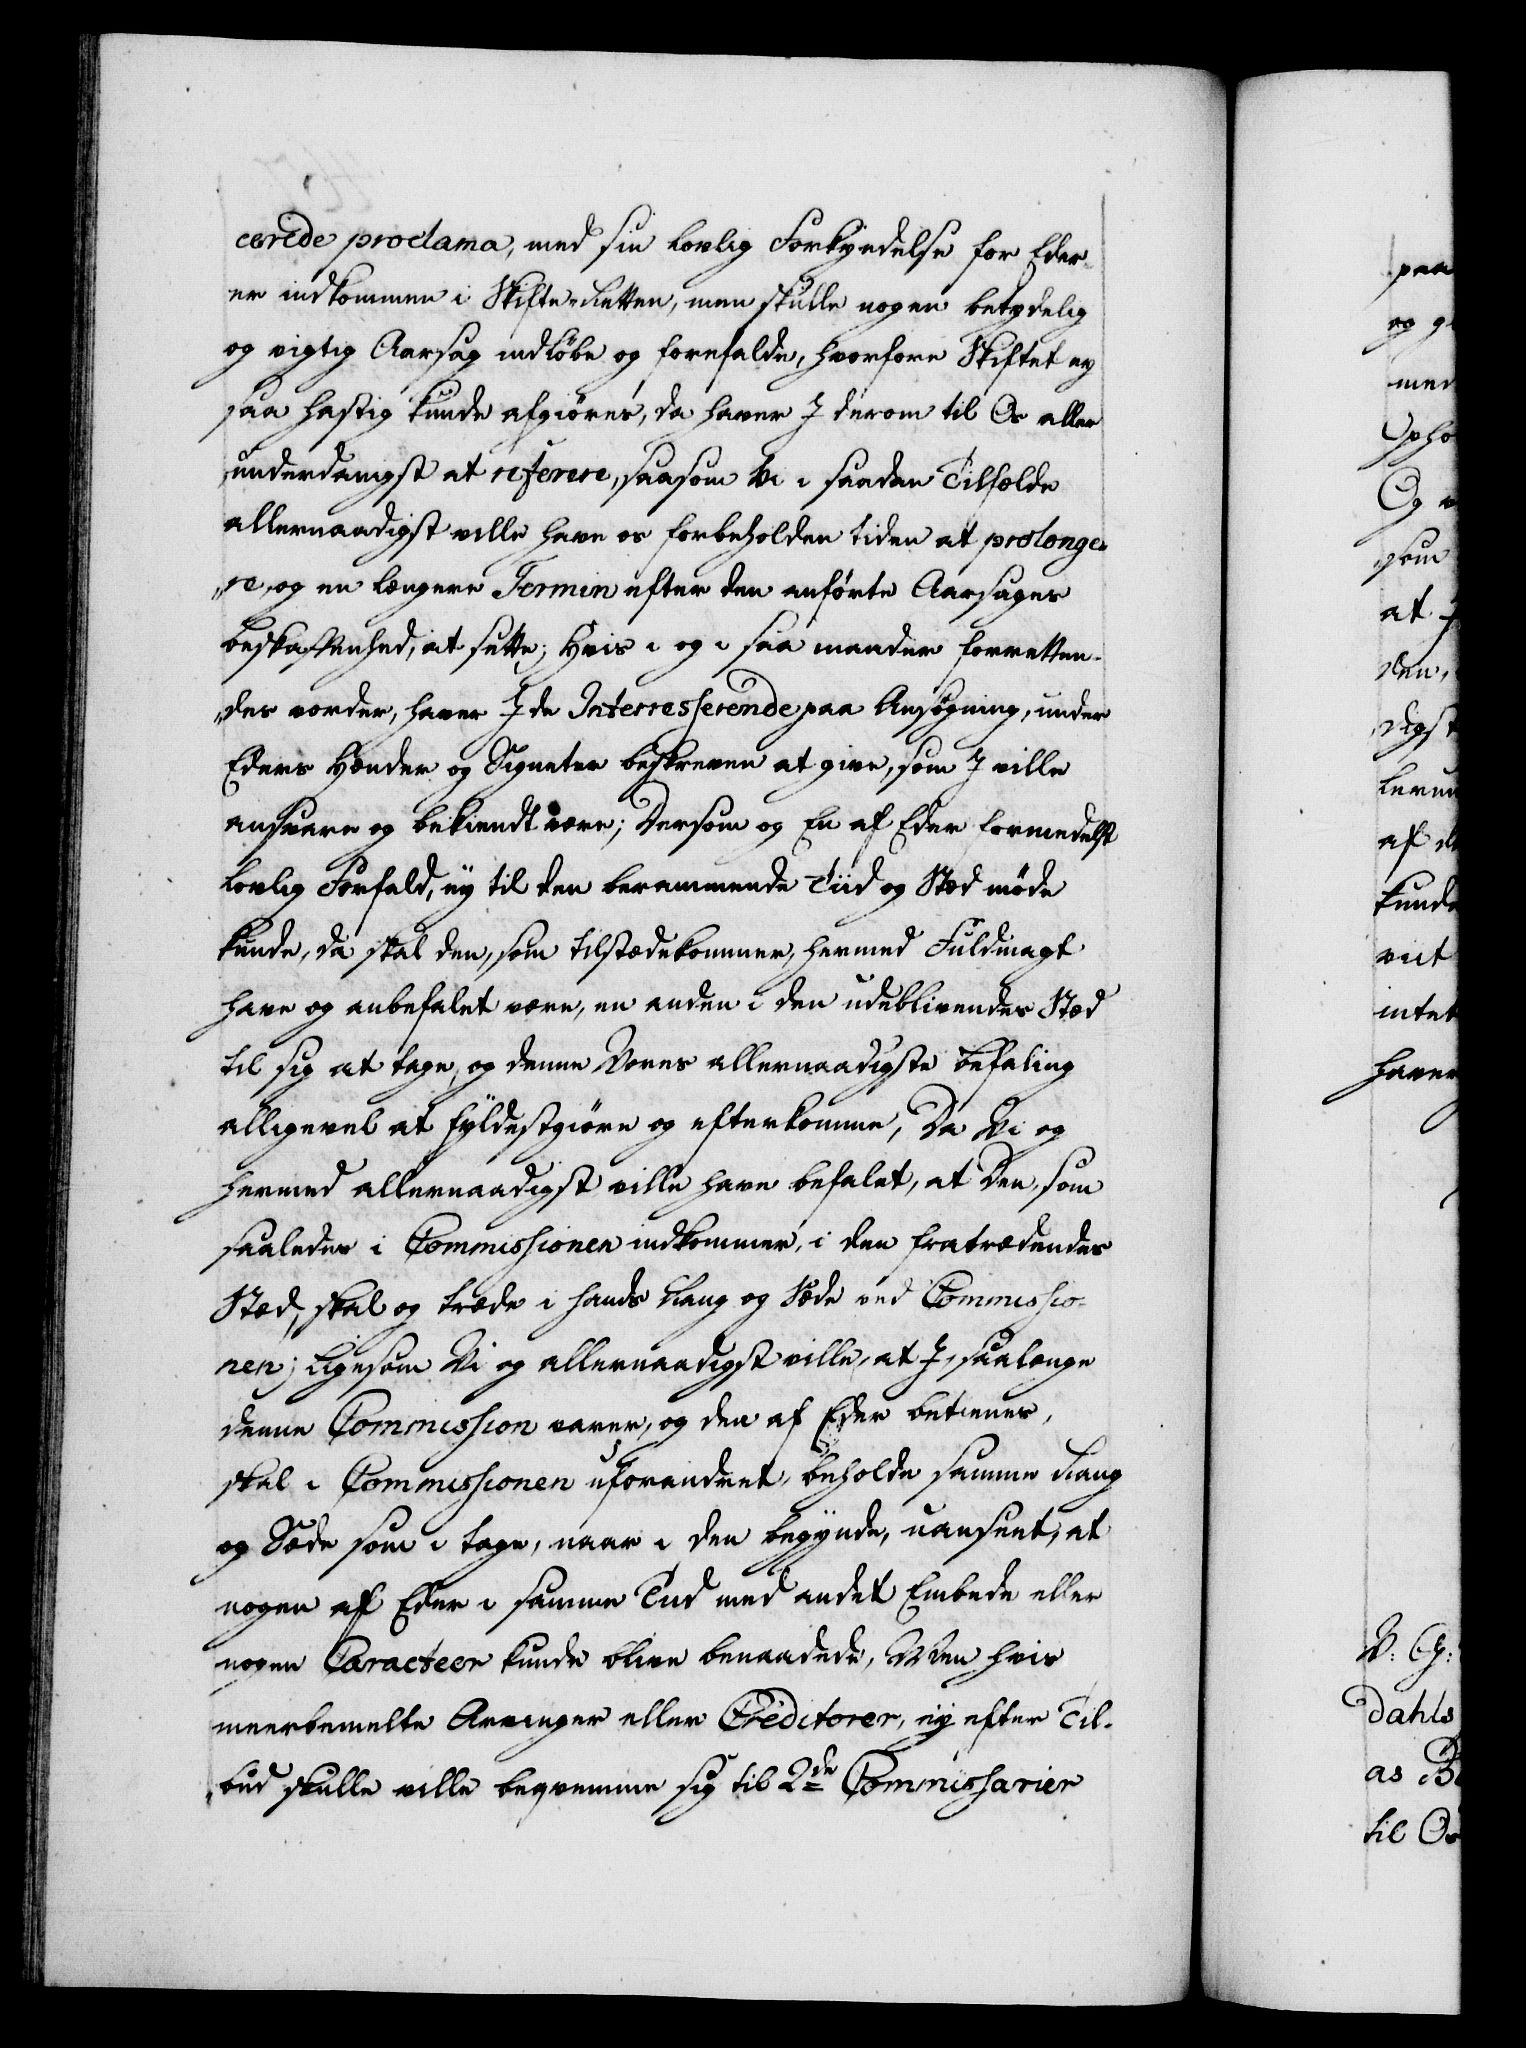 cerede proclama, med sin lovlig Forkyndelse for Eder
er indkommen i Skifte-Retten, men skulle nogen betydelig
og vigtig Aarsag indløbe og forefalde, hvorfore Skiftet ey
saa hastig kunde afgiøres, da haver I derom til Os aller
underdanigst at referere, saasom Vi i saadan Tilfælde
allernaadigst ville have os forbeholden tiden at prolonge-
re, og en længere Termin efter den anførte Aarsages
beskaffenhed, at sette; Hvis i og i saa maader forretten-
des vorder, haver I de Interresserende paa Ansøgning, under
Eders Hænder og Signeter beskreven at give, som I ville
ansvare og bekiendt være; Dersom og En af Eder formedelst
lovlig Forfald, ey til den berammende Tiid og Stæd møde
kunde, da skal den, som tilstædekommer, hermed Fuldmagt
have og anbefalet være, en anden i den udeblivendes Stæd
til sig at tage, og denne Vores allernaadigste befaling
alligevel at fyldestgiøre og efterkomme, Da Vi og
hermed allernaadigst ville have befalet, at Den, som
saaledes i Commissionen indkommer, i den fratrædendes
Stæd, skal og træde i hands Rang og Sæde ved Commissio-
nen; Ligesom Vi og allernaadigst ville, at I, saalænge
denne Commission varer, og den af Eder betienes,
skal i Commissionen uforandret, beholde samme Rang
og Sæde som i tage, naar i den begynde, uanseet, at
nogen af Eder i samme Tiid med andet Embede eller
nogen Caracteer kunde blive benaadede, Men hvis
meerbemelte Arvinger eller Creditorer, ey efter Til-
bud skulle ville beqvemme sig til 2de Commissarier
paa
og
med
Og
som
at
den,
digst
af
kunde
viit
intet
haver
Dahls
as
til Os